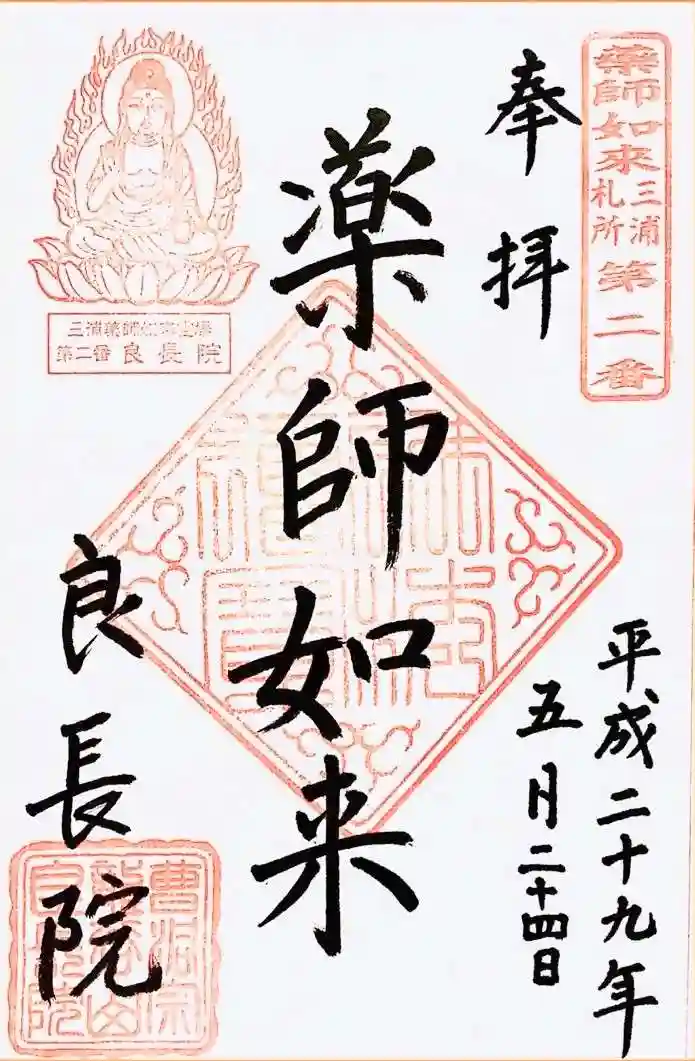 薬師如来
三浦
札所
第二番
奉拝
平成二十九年
五月二十四日
薬師如来
三浦薬師如来霊場
第二番 良長院
良長院